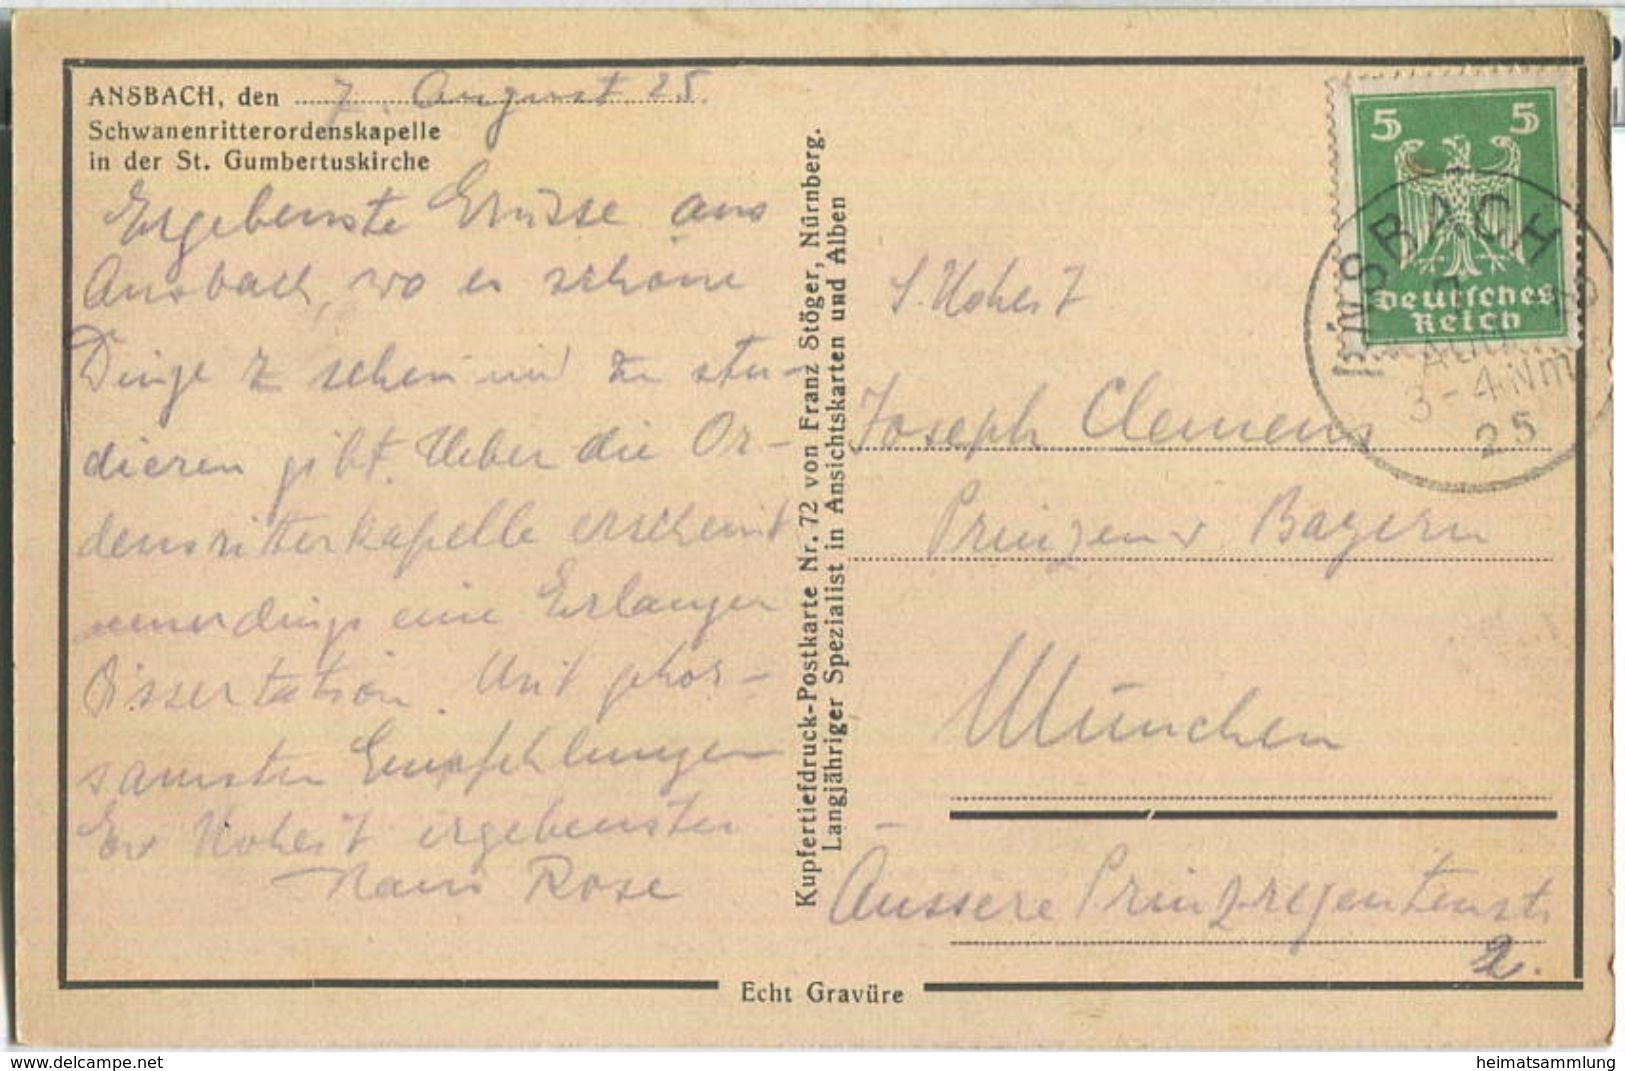 ANSBACH, den 7. August 25.
Schwanenritterordenskapelle
in der St. Gumbertuskirche
Ergebenste Grüsse aus
Ansbach, wo es schöne
Dinge z sehen und zu stu-
dieren gibt. Ueber die Or-
densritterkapelle erscheint
neuerdings eine Erlanger
Dissertation. Mit gehor-
samsten Empfehlungen
Ew Hoheit ergebenster
Hans Rose
Kupfertiefdruck-Postkarte Nr. 72 von Franz Stöger, Nürnberg.
Langjähriger Spezialist in Ansichtskarten und Alben
5 5
Deutsches
Reich
ANSBACH
AUG
3-4 Nm
25
S. Hoheit
Joseph Clemens
Prinzen v Bayern
München
Äussere Prinzregentenstr
2.
Echt Gravüre
delcampe.net
heimatsammlung